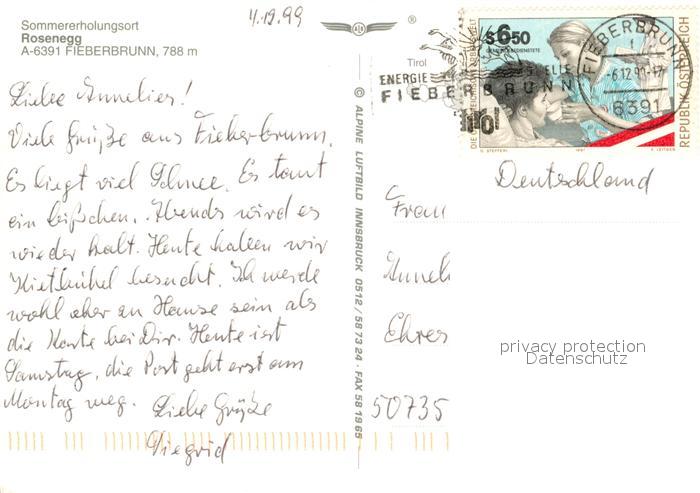 4.12.99
Sommererholungsort
Rosenegg
A-6391 FIEBERBRUNN, 788 m
Liebe Annelies!
Viele Grüße aus Fieberbrunn.
Es liegt viel Schnee. Es taut
ein bißchen. Abends wird es
wieder kalt. Heute haben wir
Kitzbühel besucht. Ich werde
wohl eher zu Hause sein als
die Karte bei Dir. Heute ist
Samstag, die Post geht erst am
Montag weg. Liebe Grüße
Siegrid
® Tirol
© ALPINE LUFTBILD INNSBRUCK 0512/587324 · FAX 581965
ENERGIE QUELLE
FIEBERBRUNN
S 6.50
DIE ARBEITSWELT
REPUBLIK ÖSTERREICH
FIEBERBRUNN
6391
Deutschland
Frau
Annel
Ehres
50735
privacy protection
Datenschutz